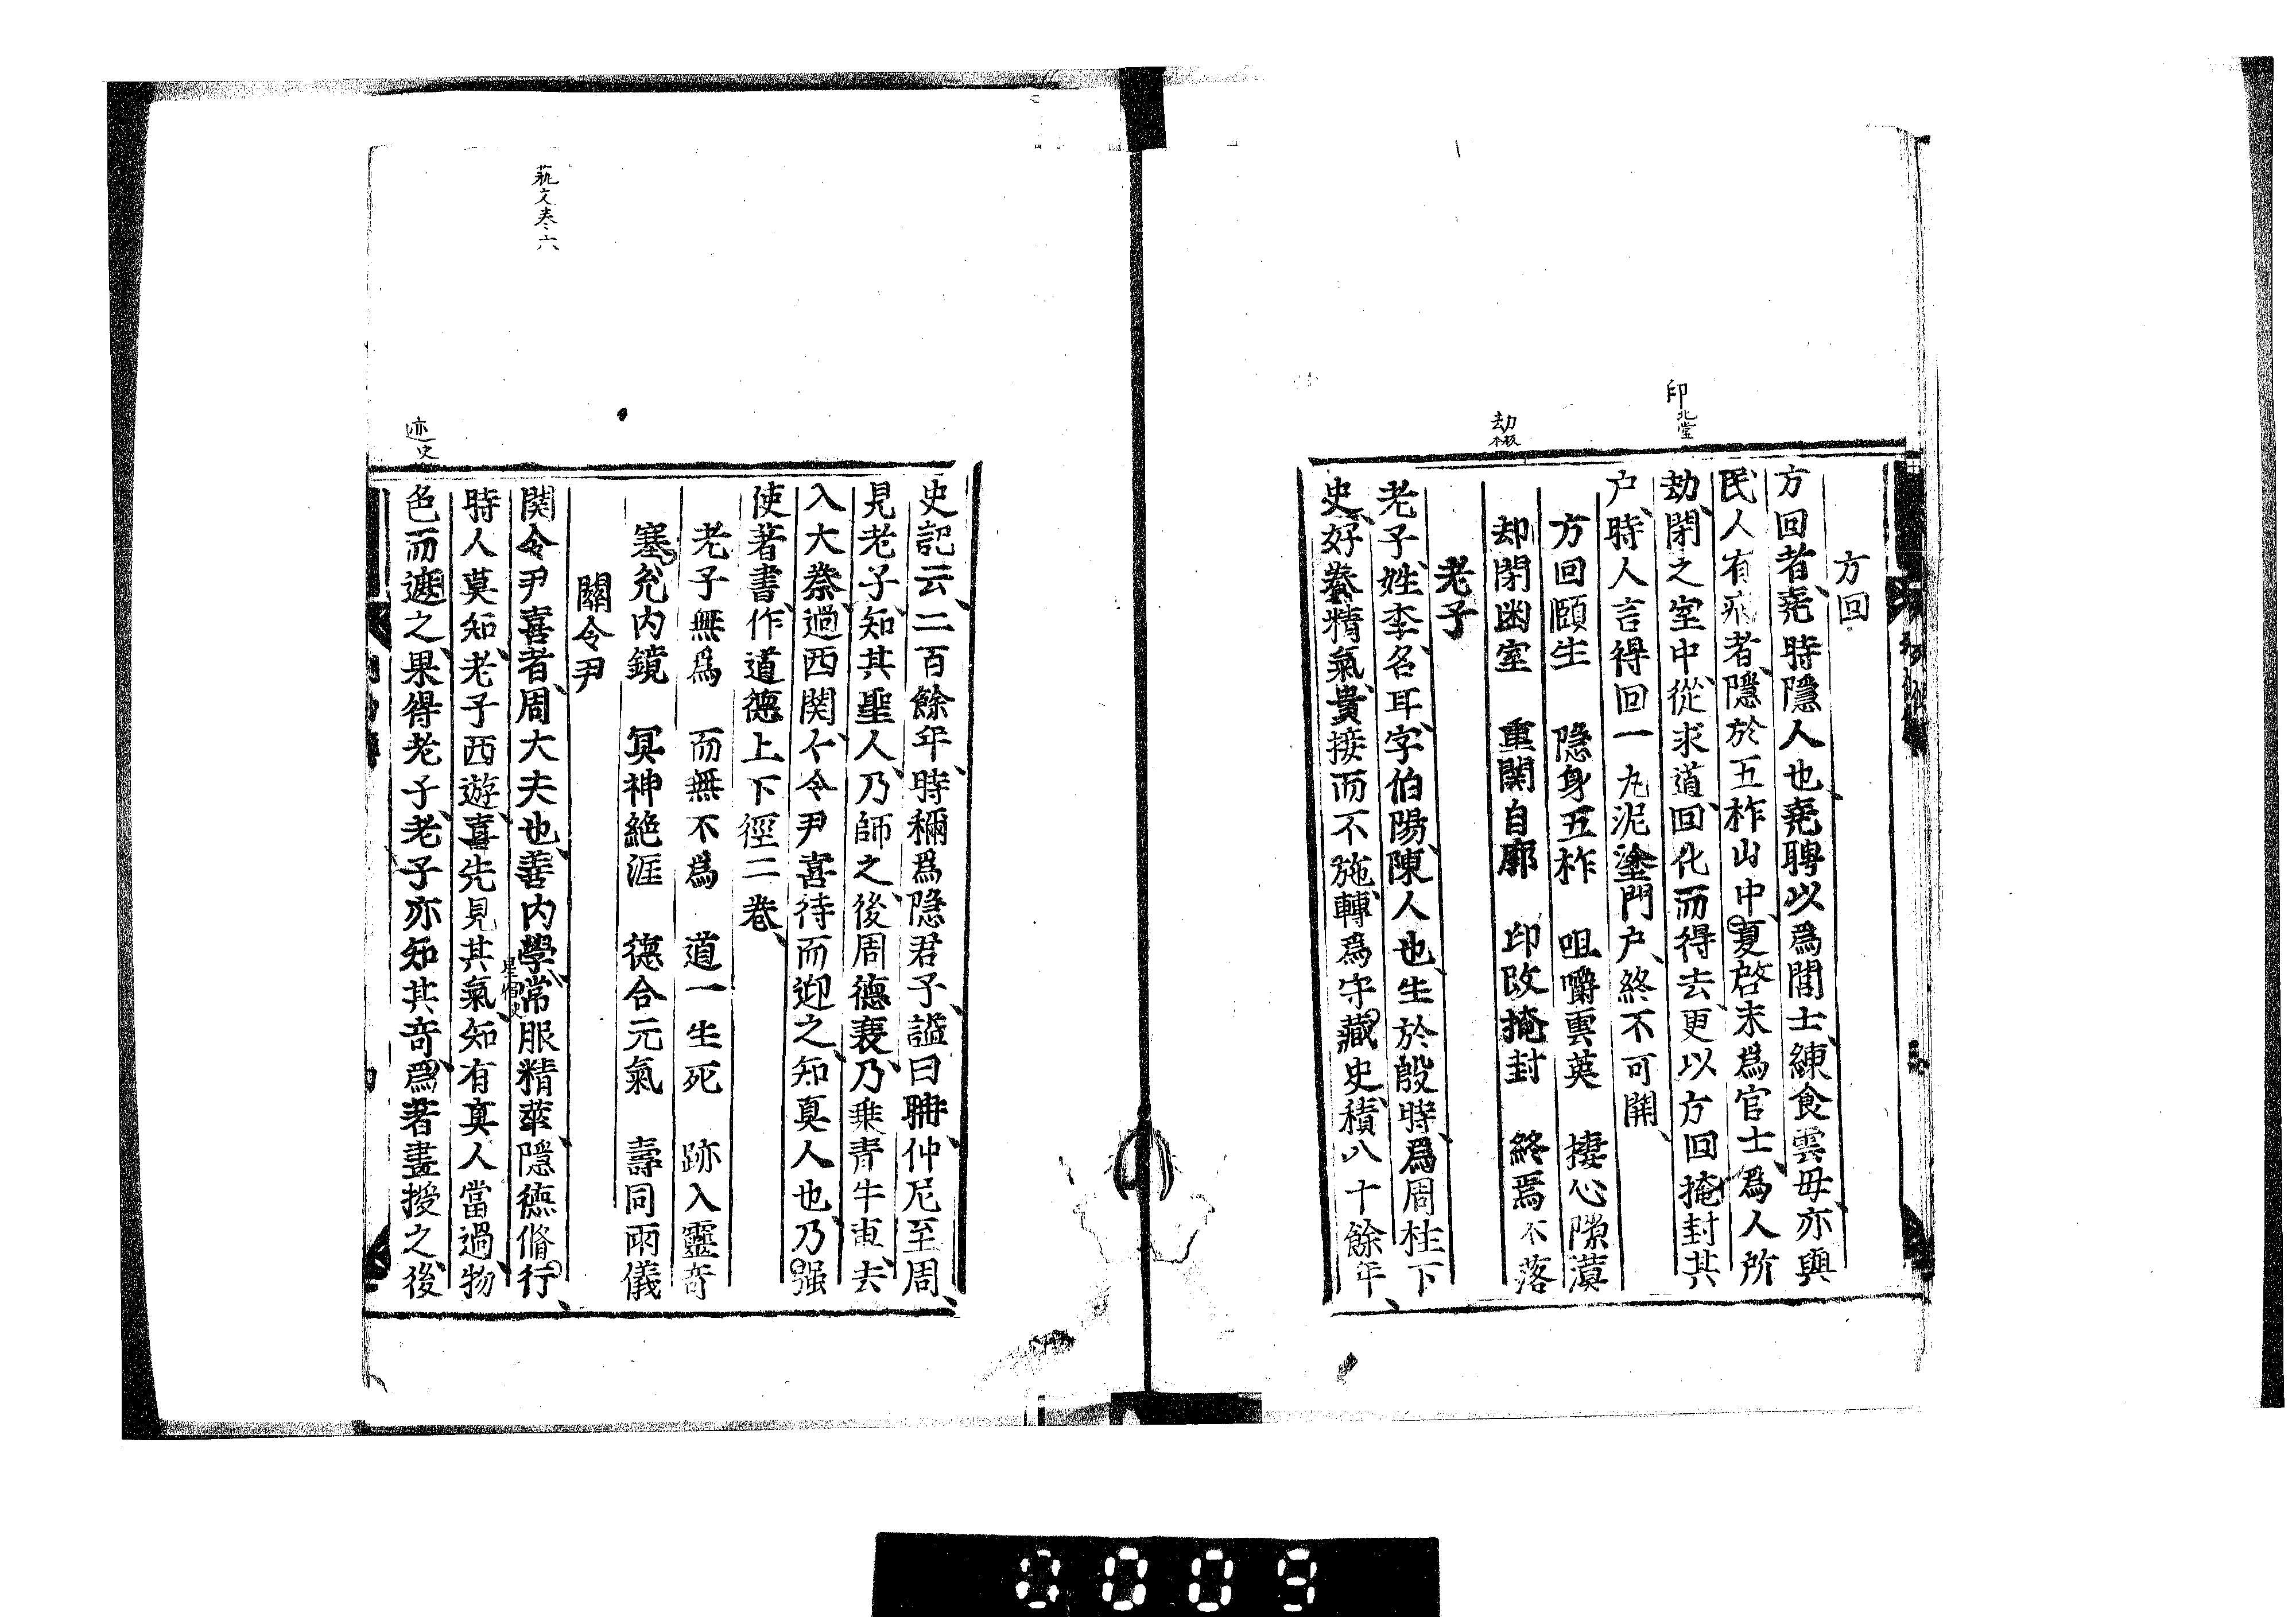 方回
方回者堯時隱人也堯聘以爲閭士練食雲母亦與
民人有病者隱於五柞山中夏啓末爲官士爲人所
劫閉之室中從求道回化而得去更以方回掩封其
户時人言得回一丸泥塗門户終不可開
方回頤生　隱身五柞　咀嚼雲英　捿心隙漠
却閉幽室　重関自廓　印改掩封　終焉不落
老子
老子姓李名耳字伯陽陳人也生於殷時爲周柱下
史好養精氣貴接而不施轉爲守藏史積八十餘年
史記云二百餘年時稱爲隱君子謚曰耼仲尼至周
見老子知其聖人乃師之後周德衰乃乗青牛車去
入大秦過西関令尹喜待而迎之知真人也乃强
使著書作道德上下經二卷
老子無爲　而無不爲　道一生死　跡入靈奇
塞兌内鏡　冥神絶涯　德合元氣　壽同兩儀
關令尹
関令尹喜者周大夫也善内學常服精華隱德脩行
時人莫知老子西遊喜先見其氣知有真人當過物
色而遮之果得老子老子亦知其奇爲著書授之後
印北堂
劫
藝文卷六
迹史
星宿史
0009